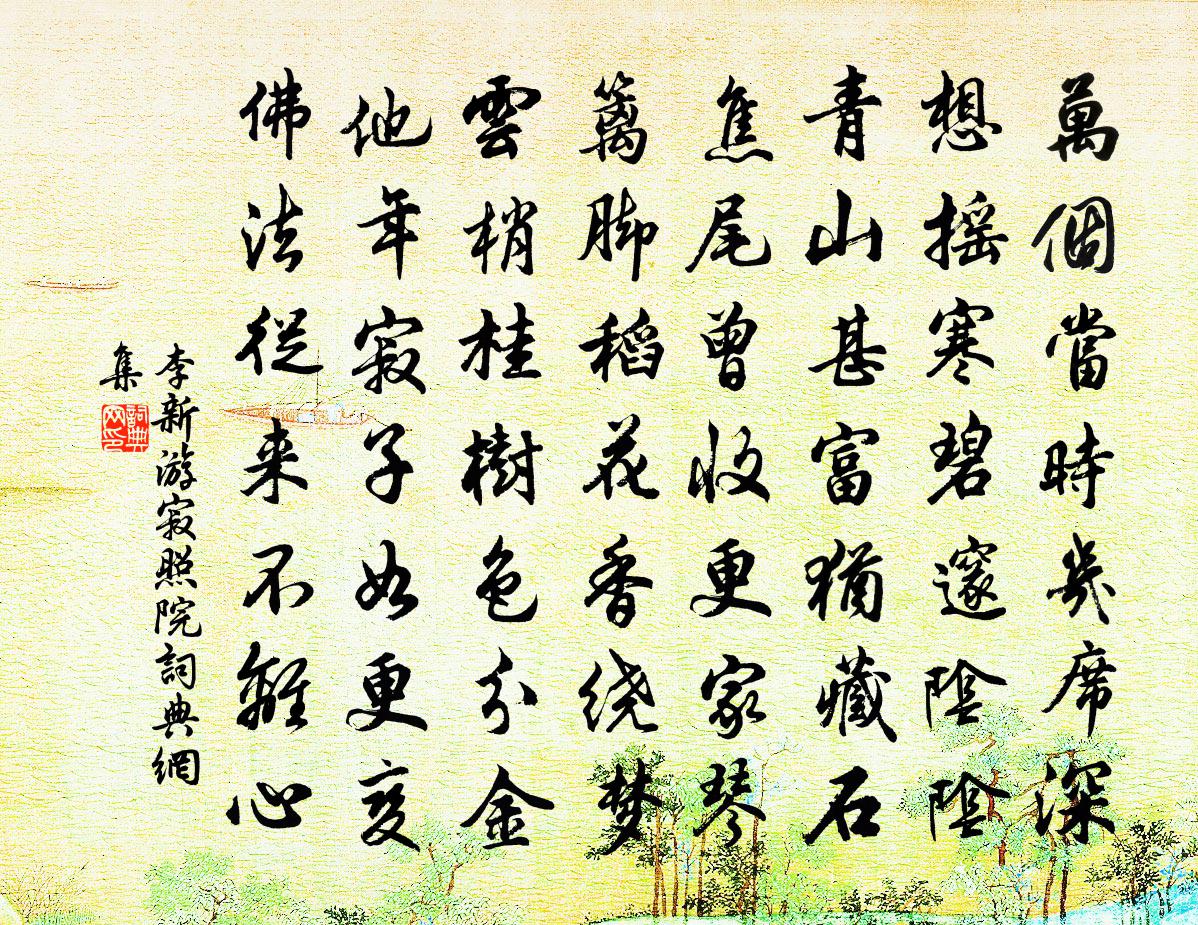 萬個當時幾席深
想摇寒碧邃陰陰
青山甚富猶藏石
焦尾曾收更家琴
篱脚稻花香绕梦
雲梢桂樹色分金
他年寂子如更变
佛法從来不離心
李新游寂照院詞典網
集
詞典网印